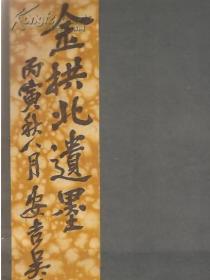 金拱北遺墨
丙寅秋八月安吉吳